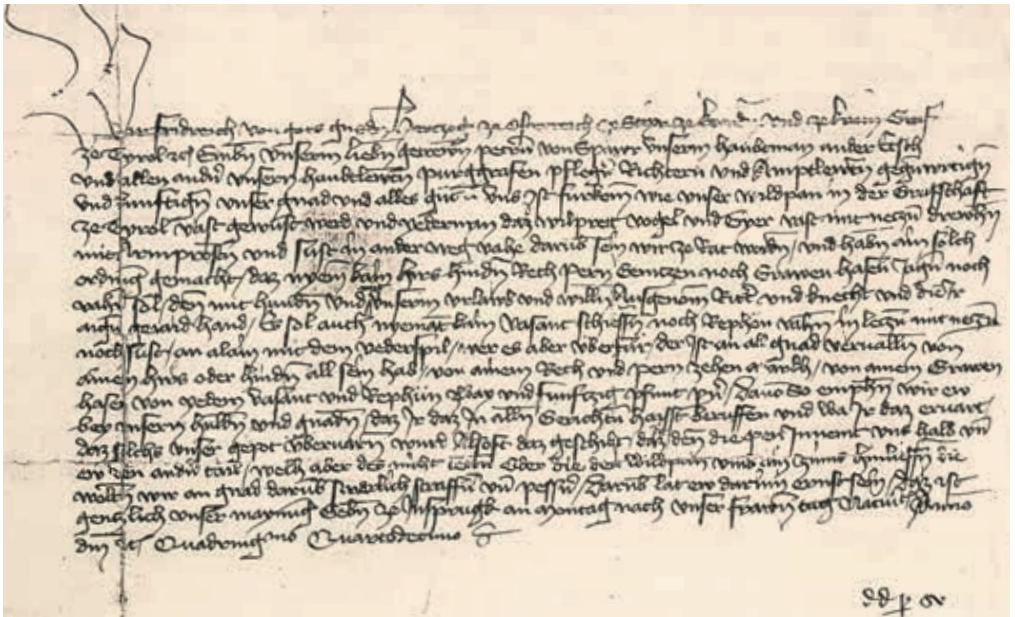 Wir Fridreich von gots gnadn Herczog ze Osterreich ze Steyr ze kernd und ze krain Graf
ze Tyrol etc Embietn unserm liebn getrewn petern von Spawr unserm haubtman an der Etsch
und allen andern unsern haubtlewten purggrafen pflegern Richtern und Amptlewten gegenwurtign
und kunftign unser gnad und alles gut Uns ist furkomen wie unser wildpan in der Graffschaft
ze Tyrol vast gewust werd und yederman daz wilpret vogel und Tyer vast mit neczn drewhn
mit Armprosten und sust in ander weg vahe darumb sein wir ze Rat wordn / und habn ain solch
ordnung gemacht / daz nyemand kain hyrs hindn Rech pern Gemczen noch Grawen hasen Jagn noch
vahn sol / denn mit hundn und unserm urlawb und willn / Ausgenomen Ritter und knecht und die Ir
aigen gejaid hand / Es sol auch nyemant kain vasant schiessn noch Rephun vahen in leczn mit neczn
noch sust / an alain mit dem vederspil / wer es aber uberfur / der ist an al gnad vervalln von
ainem hirs oder hindn all sein hab / von ainem Rech und pern zehen march / von ainem Grawen
hasen von yedem vasant und Rephun und funfczig phunt perner / Davon So emphelhn wir ew
bey unsern huldn und gnadn / daz Ir daz In alln Gerichtn haisset beruffen und wa Ir daz ervart
daz solchs unser gepot ubervarn wurd Alsofft daz geschiht / daz denn die pen Innemt uns halb und
ew den andern tail / welh aber des nicht tetn Oder die den wildpan umb ain zins hinliessn die
woltn wir an gnad darumb swerlich straffen und pessern / Darumb lat ew darinn Ernst sein / daz ist
genczlich unser maynung Gebn ze Insprugk an montag nach unser frawn tag Nativit Anno
dm etc Quadringmo Quartodecimo
dd p